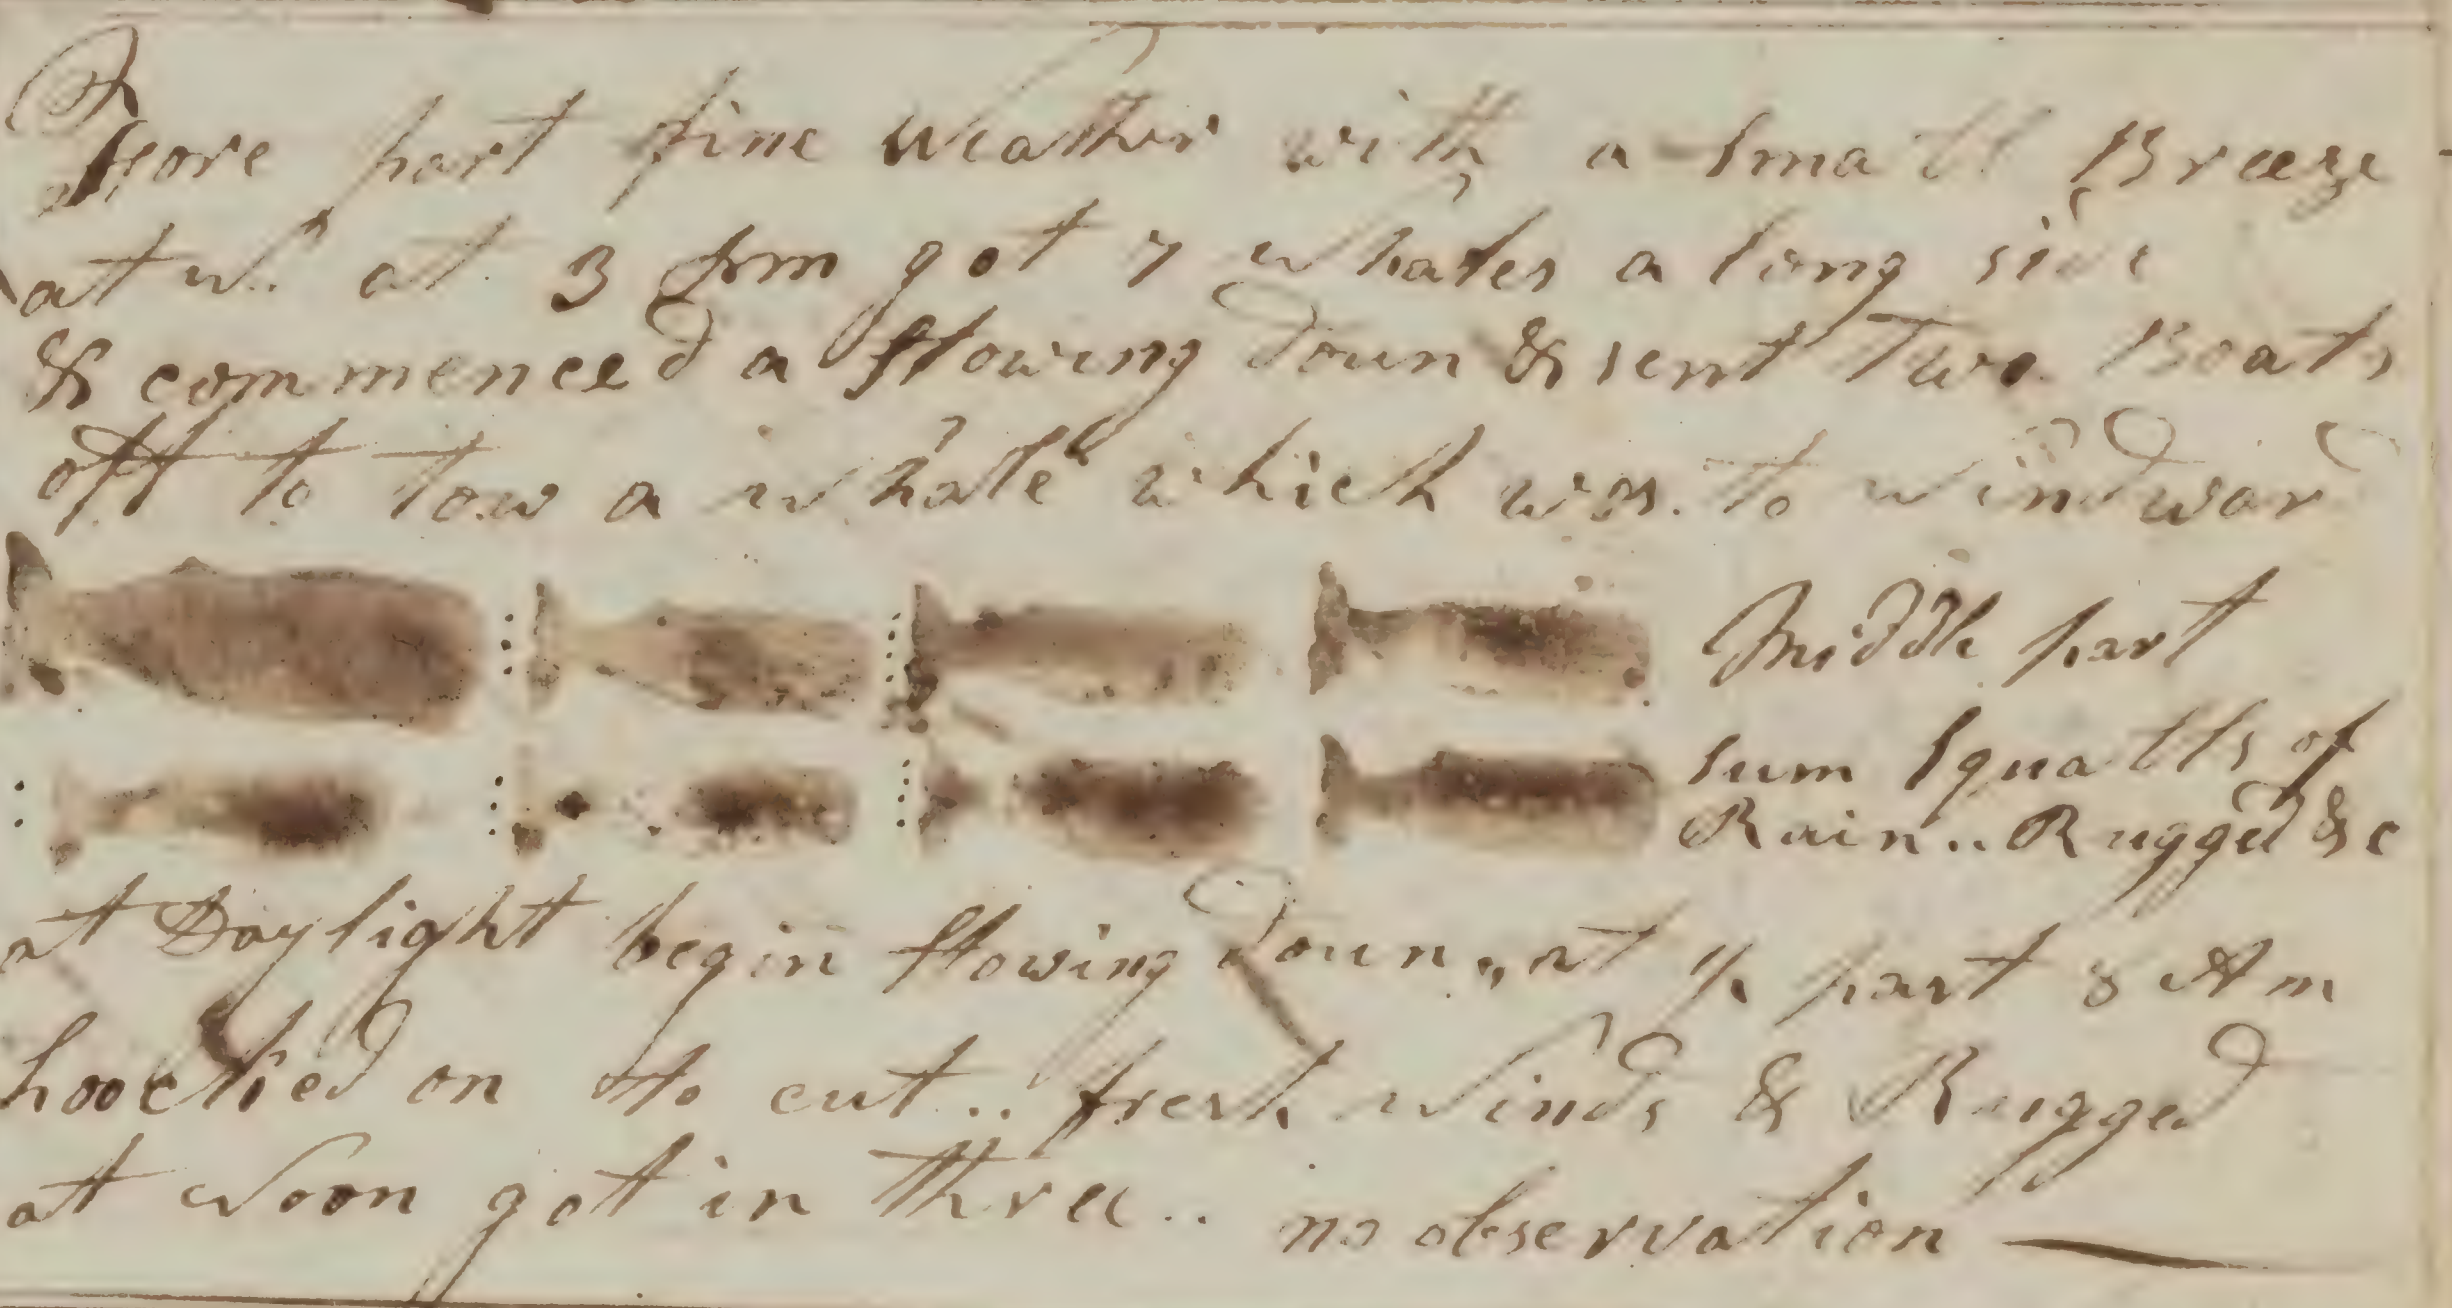 Fore part fine Weather with a small Breeze
at W. at 3 pm got 7 whales a long side
& commenced a stowing down & sent Two Boats
off to tow a whale which was to windward
Middle part
sum squalls of
Rain.. Rugged &c
at Daylight begin stowing down,, at ½ past 8 AM
hoocked on to cut.. fresh winds & Rugged
at Noon got in three.. no observation